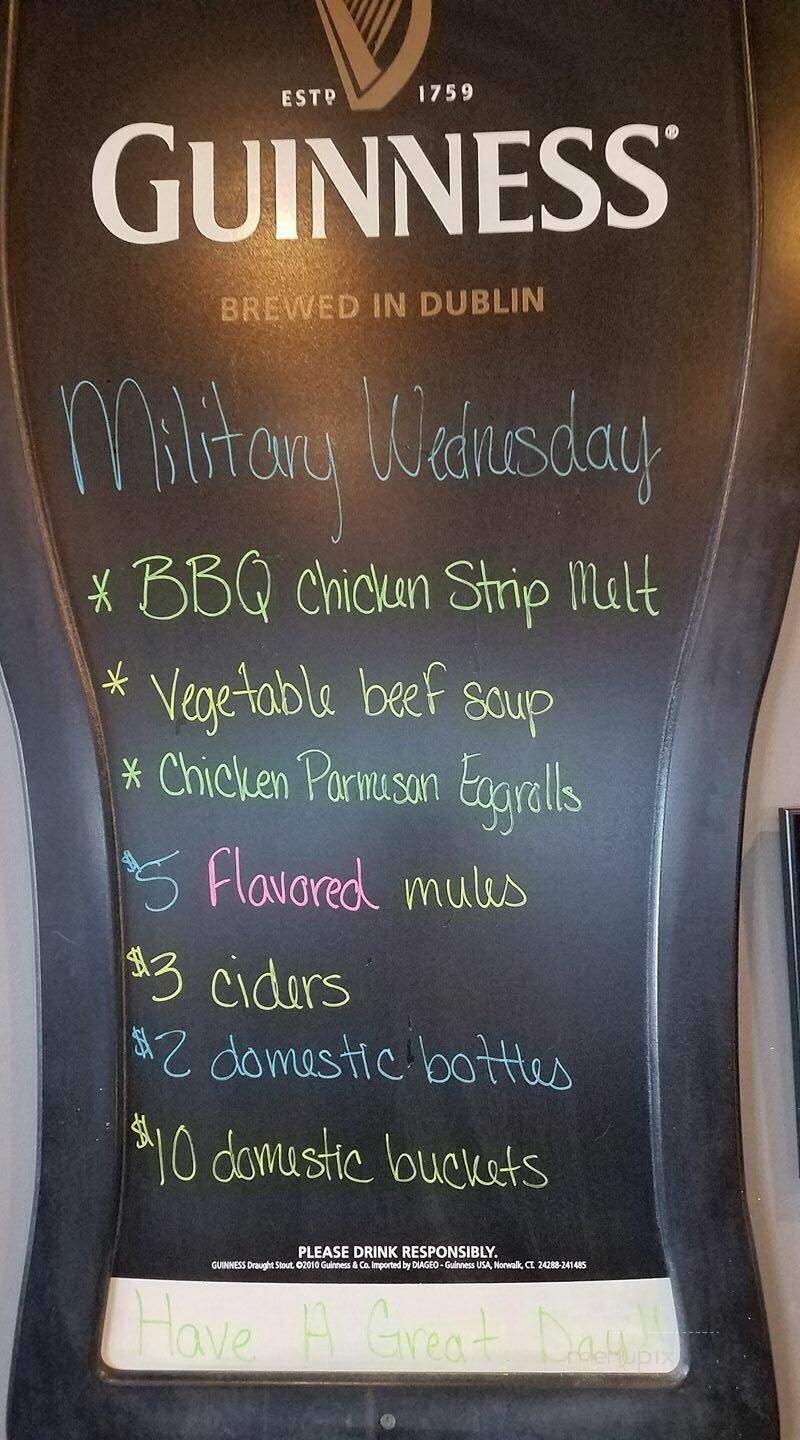 ESTD 1759
GUINNESS®
BREWED IN DUBLIN
Military Wednesday
* BBQ Chicken Strip Melt
* Vegetable beef soup
* Chicken Parmesan Eggrolls
$5 Flavored mules
$3 ciders
$2 domestic bottles
$10 domestic buckets
PLEASE DRINK RESPONSIBLY.
GUINNESS Draught Stout. ©2010 Guinness & Co. Imported by DIAGEO - Guinness USA, Norwalk, CT. 24288-241485
Have A Great Day!!
menupix